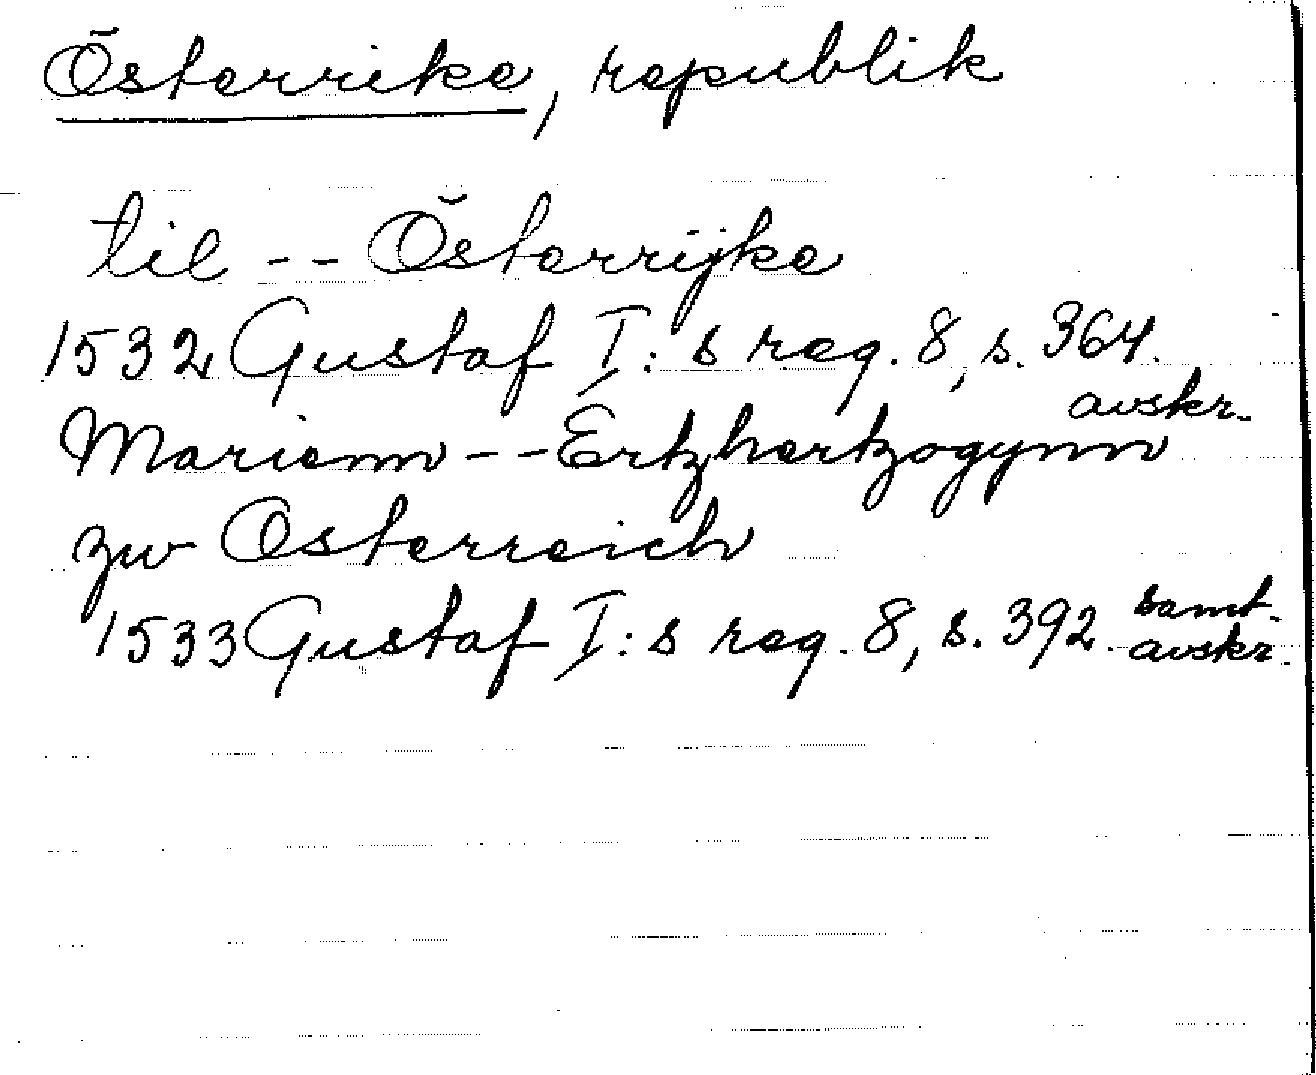 Österrike, republik
til -- Österrijke
1532 Gustaf I:s reg. 8, s. 364.
avskr.
Marienn -- Ertzhertzogynn
zw Osterreich
1533 Gustaf I:s reg. 8, s. 392. samt.
avskr.